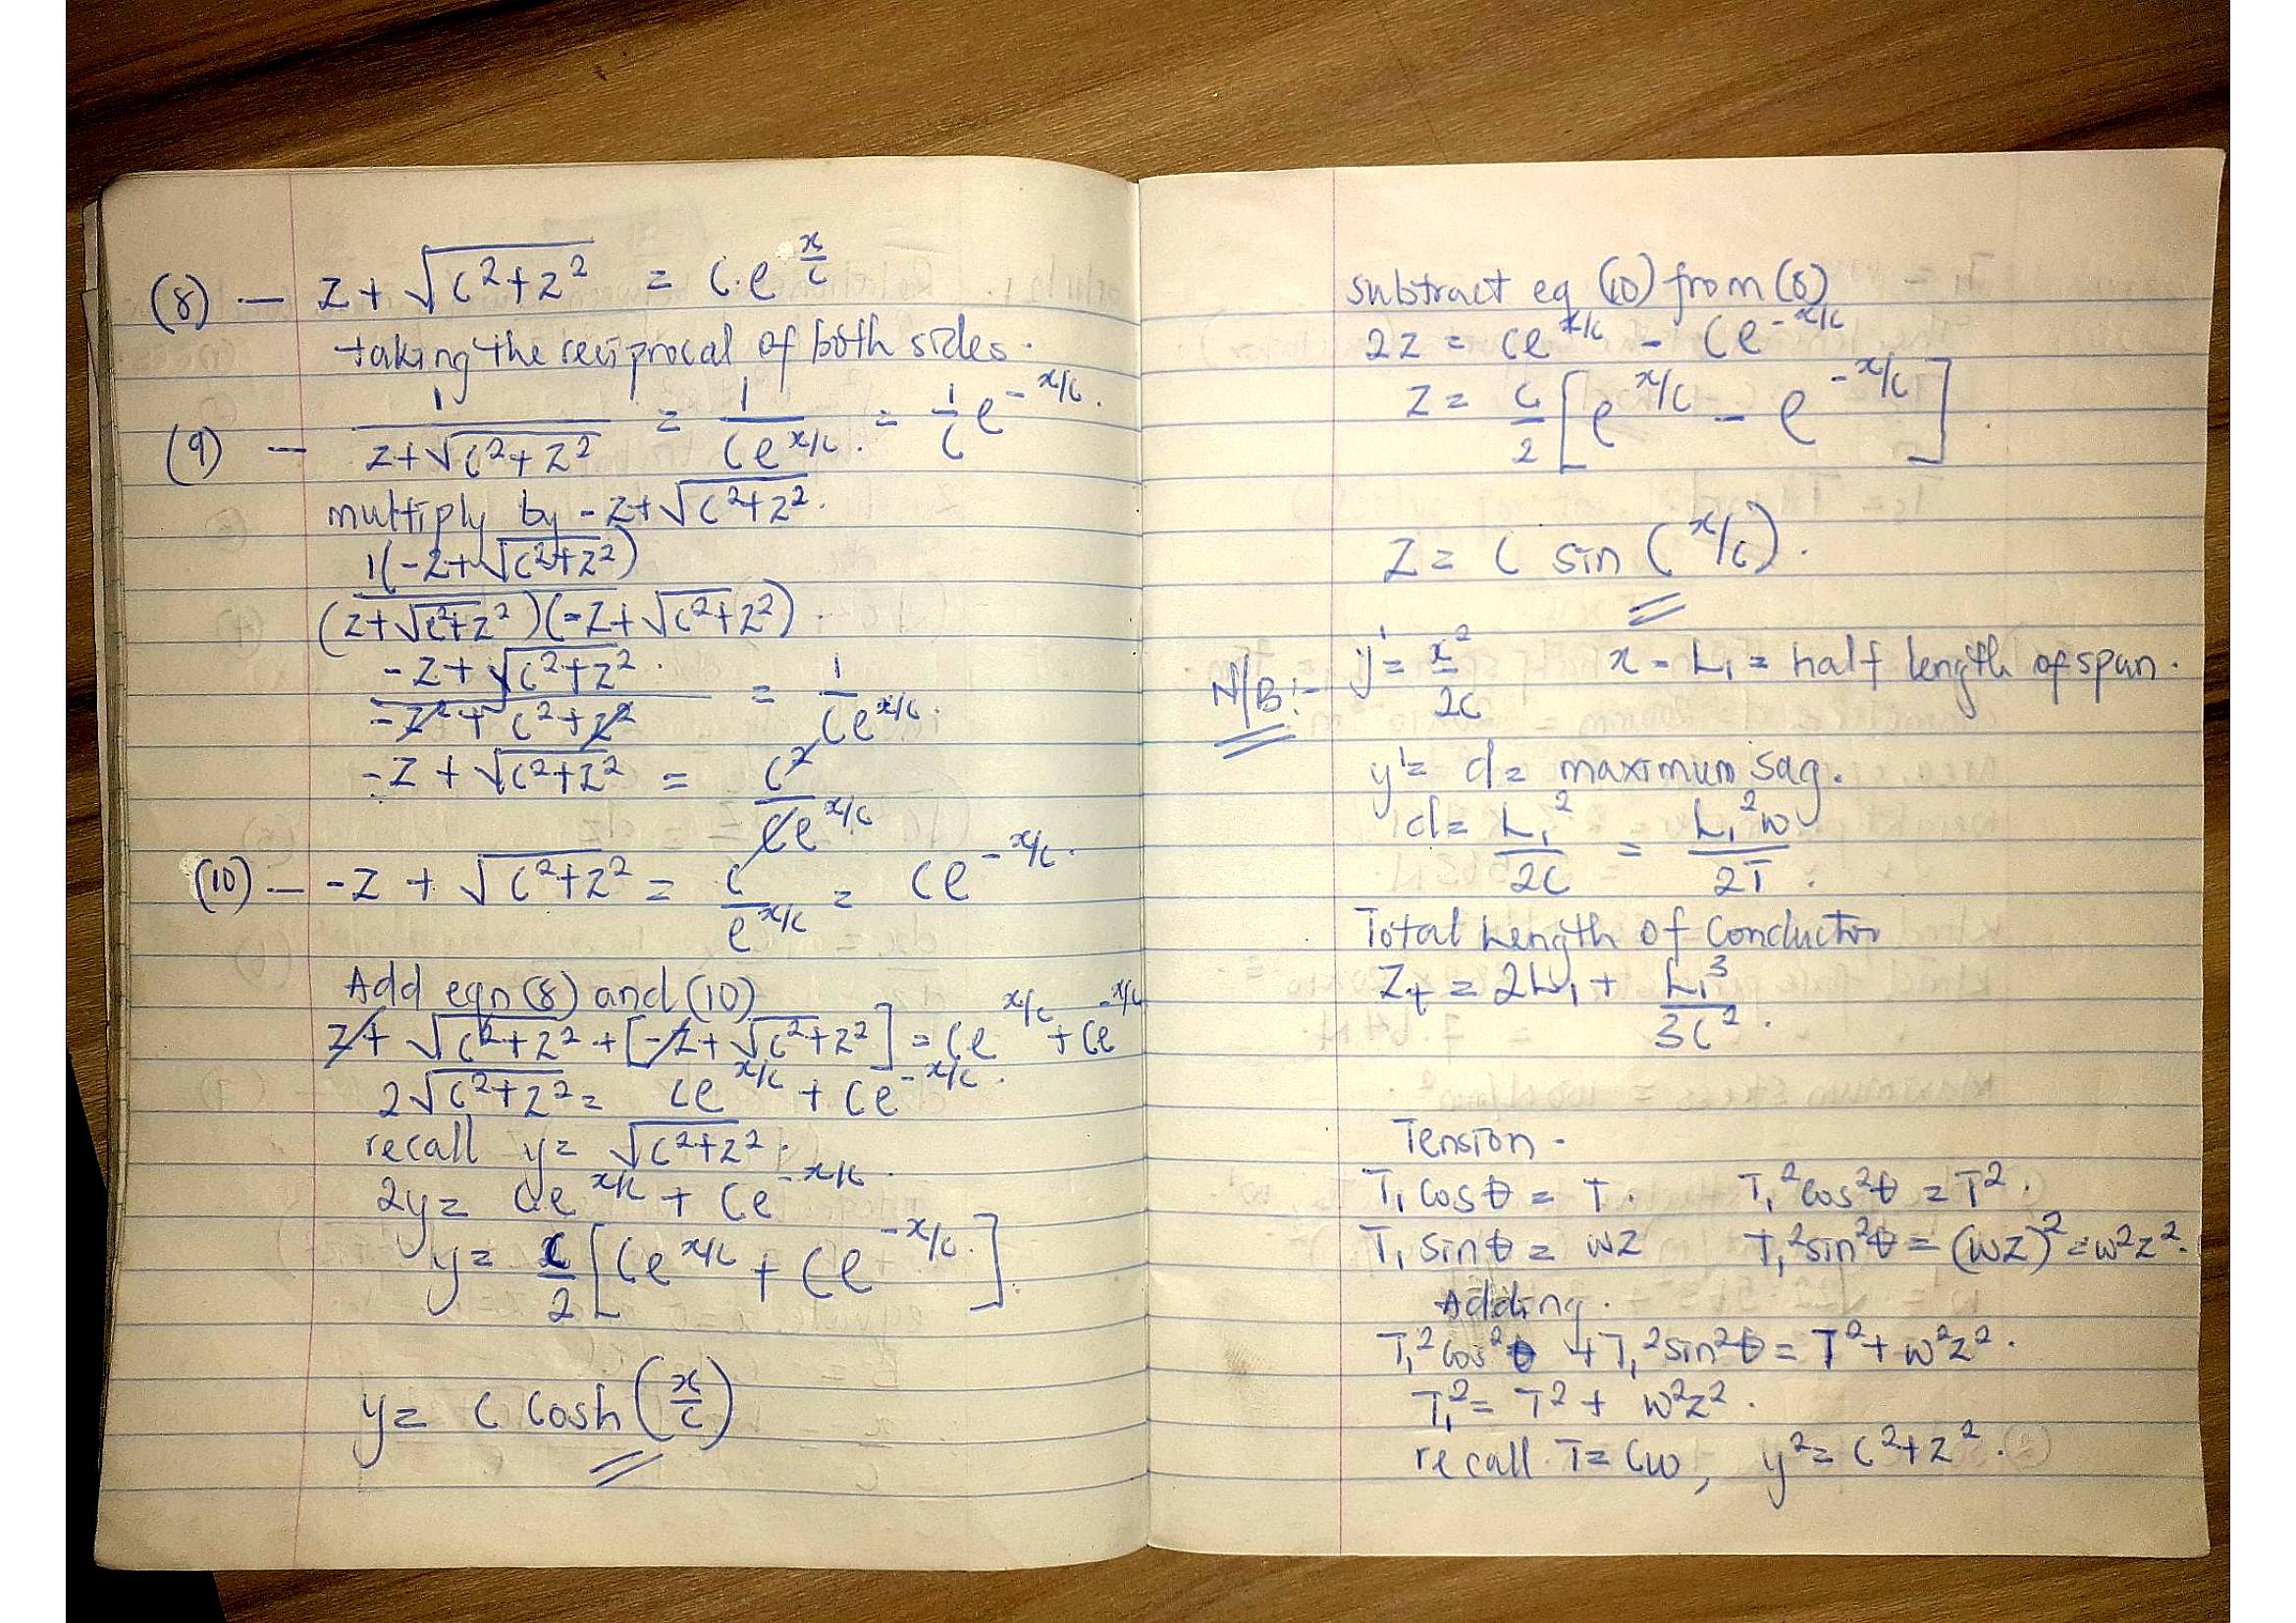 (8) — z + √(c²+z²) = c.e^(x/c)
taking the reciprocal of both sides.
(9) — 1/(z+√(c²+z²)) = 1/(ce^(x/c)) . = 1/c e^(-x/c).
multiply by -z+√(c²+z²).
1(-z+√(c²+z²))
(z+√(c²+z²))(-z+√(c²+z²)) .
-z+√(c²+z²) . / -z²+c²+z² = 1/(ce^(x/c)) .
-z + √(c²+z²) = c²/(ce^(x/c))
(10) — -z + √(c²+z²) = c/(e^(x/c)) = ce^(-x/c).
Add eqn (8) and (10)
z+√(c²+z²) + [-z+√(c²+z²)] = ce^(x/c) + ce^(-x/c)
2√(c²+z²) = ce^(x/c) + ce^(-x/c).
recall y = √(c²+z²).
2y = ce^(x/c) + ce^(-x/c).
y = c/2 [ce^(x/c) + ce^(-x/c).].
y = c cosh (x/c)
subtract eq (10) from (8)
2z = ce^(x/c) - ce^(-x/c)
z = c/2 [e^(x/c) - e^(-x/c)].
z = c sin (x/c).
N/B:- y' = x²/2c x = L₁ = half length of span.
y' = d = maximum sag.
d = L₁²/2c = L₁²w/2T .
Total Length of Conductor
Zt = 2L₁ + L₁³/3c² .
Tension -
T₁ cos θ = T. T₁² cos²θ = T².
T₁ sin θ = wz T₁² sin²θ = (wz)² = w²z².
Adding.
T₁² cos²θ + T₁² sin²θ = T² + w²z².
T₁² = T² + w²z².
recall T = cw, y² = c²+z².